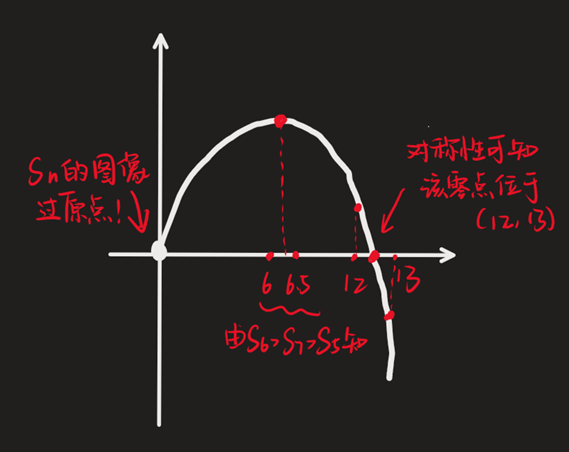 Sn的图像
过原点!
对称性可知
该零点位于
(12,13)
6 6.5 12 13
由S6>S7>S5知